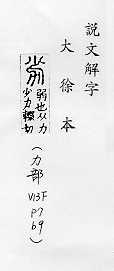 説文解字
大徐本
劣
弱也从力
少力輟切
(力部 V13F P7 b9)